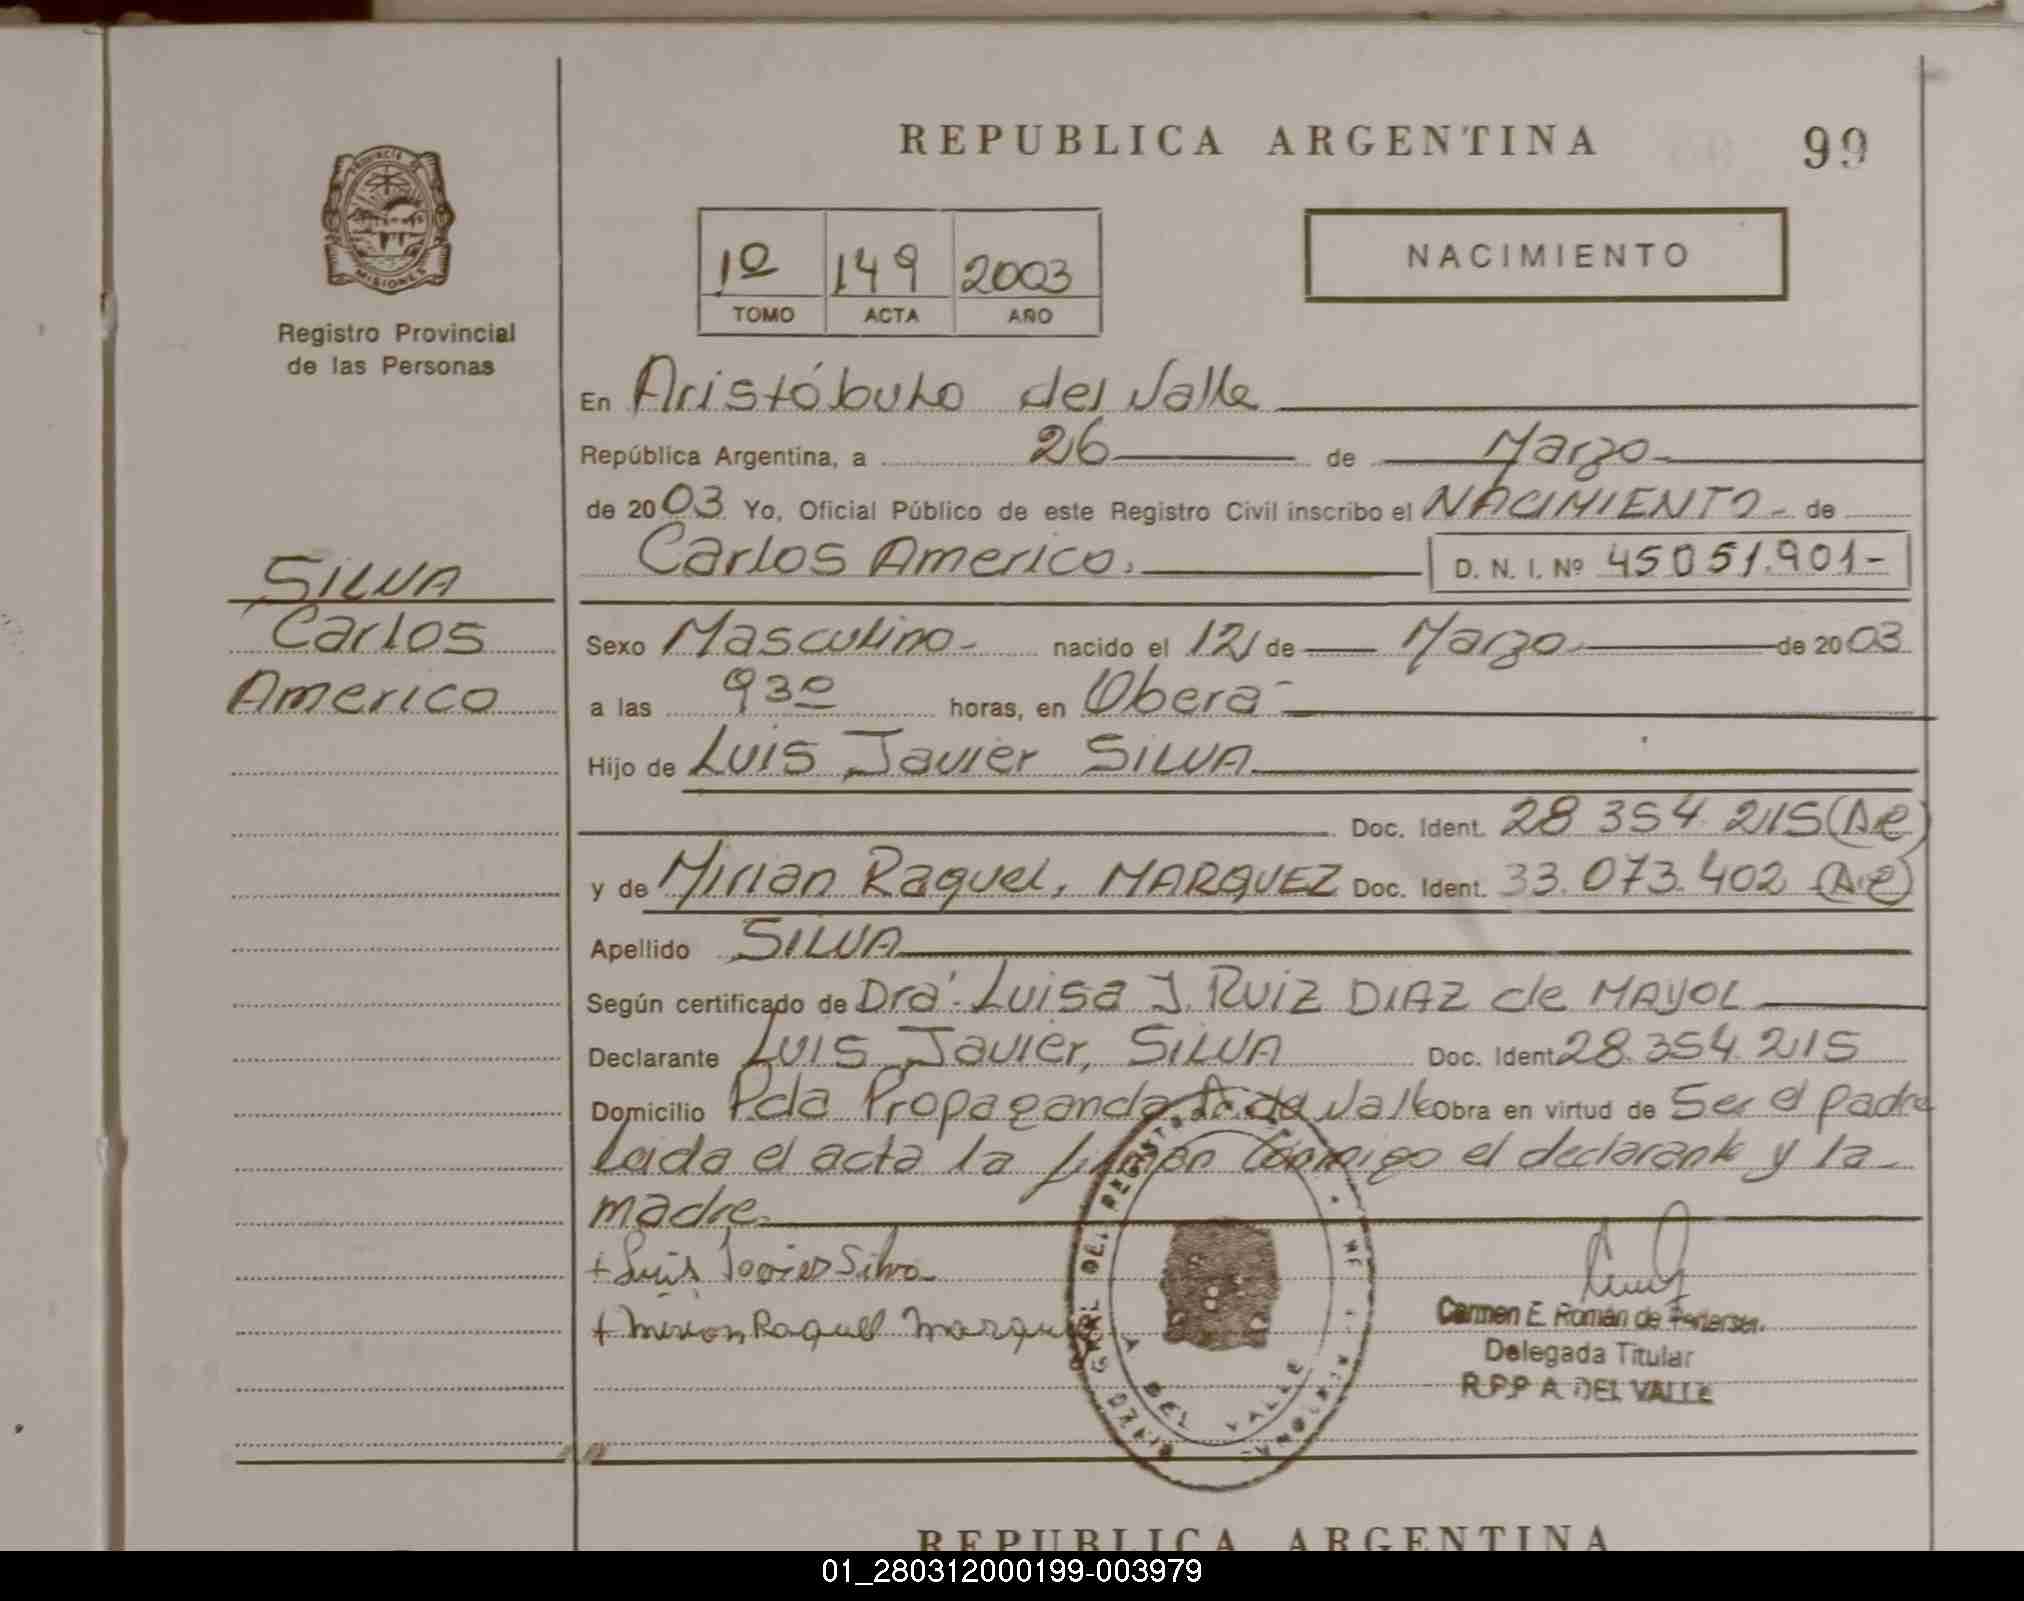 REPUBLICA ARGENTINA 99
PROVINCIA DE
MISIONES
Registro Provincial
de las Personas
1º 149 2003
TOMO ACTA AÑO
NACIMIENTO
En Aristóbulo del Valle
República Argentina, a 26 de Marzo
de 2003 Yo, Oficial Público de este Registro Civil inscribo el NACIMIENTO de
Carlos Americo. D. N. I. Nº 45051.901-
SILVA
Carlos
Americo
Sexo Masculino nacido el 12 de Marzo de 2003
a las 930 horas, en Oberá
Hijo de Luis Javier SILVA
Doc. Ident. 28 354 215 (Ar)
y de Mirian Raquel, MARQUEZ Doc. Ident. 33.073.402 (Ar)
Apellido SILVA
Según certificado de Dra. Luisa J. RUIZ DIAZ de MAYOL
Declarante Luis Javier, SILVA Doc. Ident. 28.354.215
Domicilio Pda Propaganda A. del Valle Obra en virtud de Ser el padre
Leida el acta la firman conmigo el declarante y la
madre.
+ Luis Javier Silva
+ Mirian Raquel Marqu
DEL REGISTRO
A DEL VALLE
Carmen E. Román de Pedersen
Delegada Titular
R.P.P A. DEL VALLE
REPUBLICA ARGENTINA
01_280312000199-003979